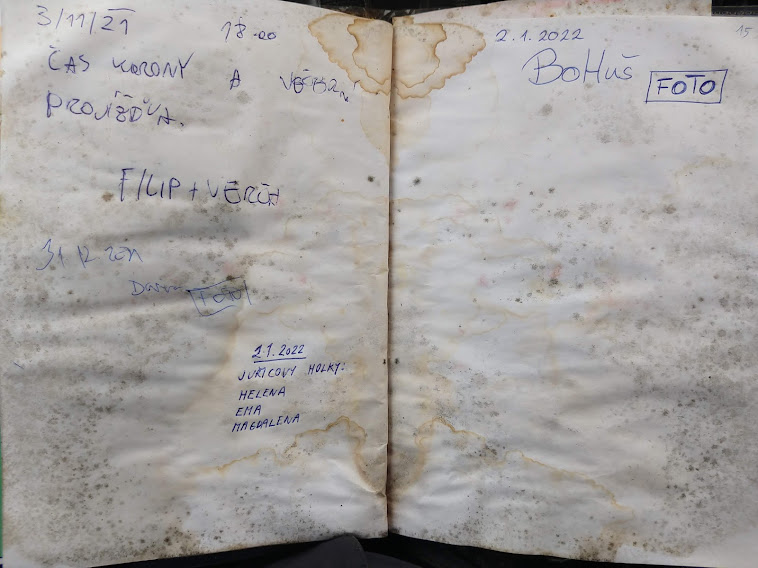 3/11/21 18.00
ČAS KORONY A VEČERNÍ
PROJÍŽĎKA.
FILIP + VERČA
31 12 2021
FOTO
1.1.2022
JUŘICOVY HOLKY:
HELENA
EMA
MAGDALENA
2.1.2022 15
BOHUŠ FOTO